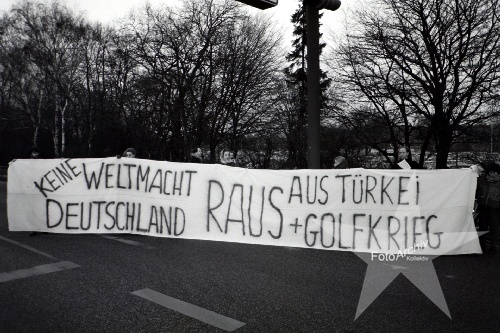 KEINE WELTMACHT
DEUTSCHLAND
RAUS AUS TÜRKEI
+GOLFKRIEG
FotoArchiv
Kollektiv